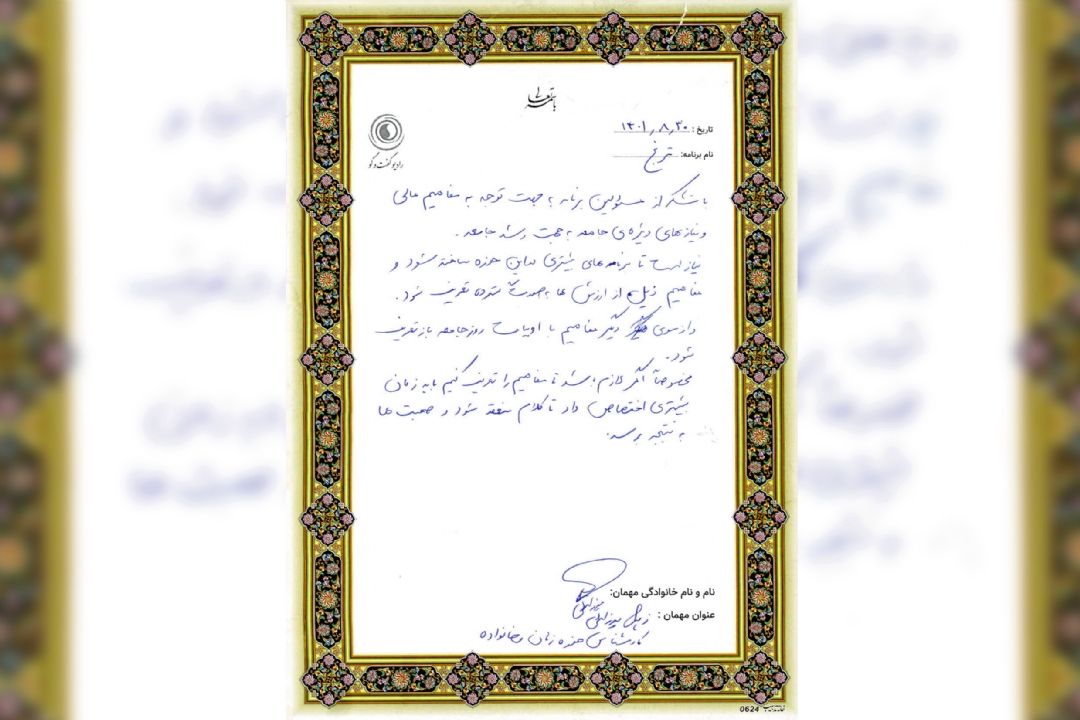 باسمه تعالی
تاریخ: ۱۴۰۱٫۸٫۳۰
نام برنامه: ترنج
رادیو گفت‌وگو
با تشکر از مسئولین برنامه به جهت توجه به مفاهیم عالی
و نیازهای ویژه‌ی جامعه به جهت رشد جامعه.
نیاز است تا برنامه‌های بیشتری در این حوزه ساخته شود و
مفاهیم ذیل از ارزش ها به صورت گسترده تعریف شود.
و از سوی دیگر مفاهیم با ادبیات روز جامعه باز تعریف
شود.
مخصوصاً اگر لازم باشد تا مفاهیم را تعریف کنیم باید زمان
بیشتری اختصاص داد تا کلام منعقد شود و صحبت ها
به نتیجه برسد.
نام و نام خانوادگی مهمان:
عنوان مهمان:
کارشناس حوزه زنان و خانواده
0624